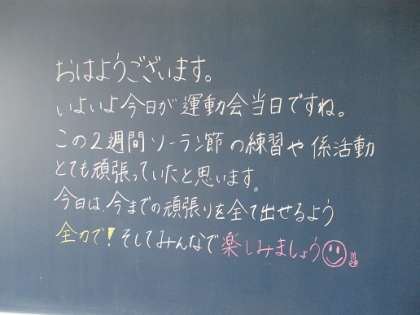 おはようございます。
いよいよ今日が運動会当日ですね。
この2週間ソーラン節の練習や係活動
とても頑張っていたと思います。
今日は、今までの頑張りを全て出せるよう
全力で!そしてみんなで楽しみましょう